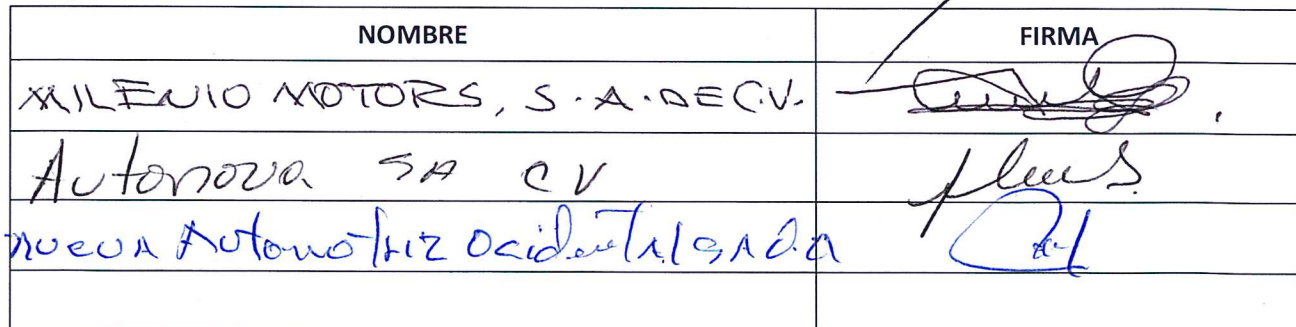 NOMBRE FIRMA
MILENIO MOTORS, S.A. DE C.V.
Autonova SA CV
nueva Automotriz Ocidental